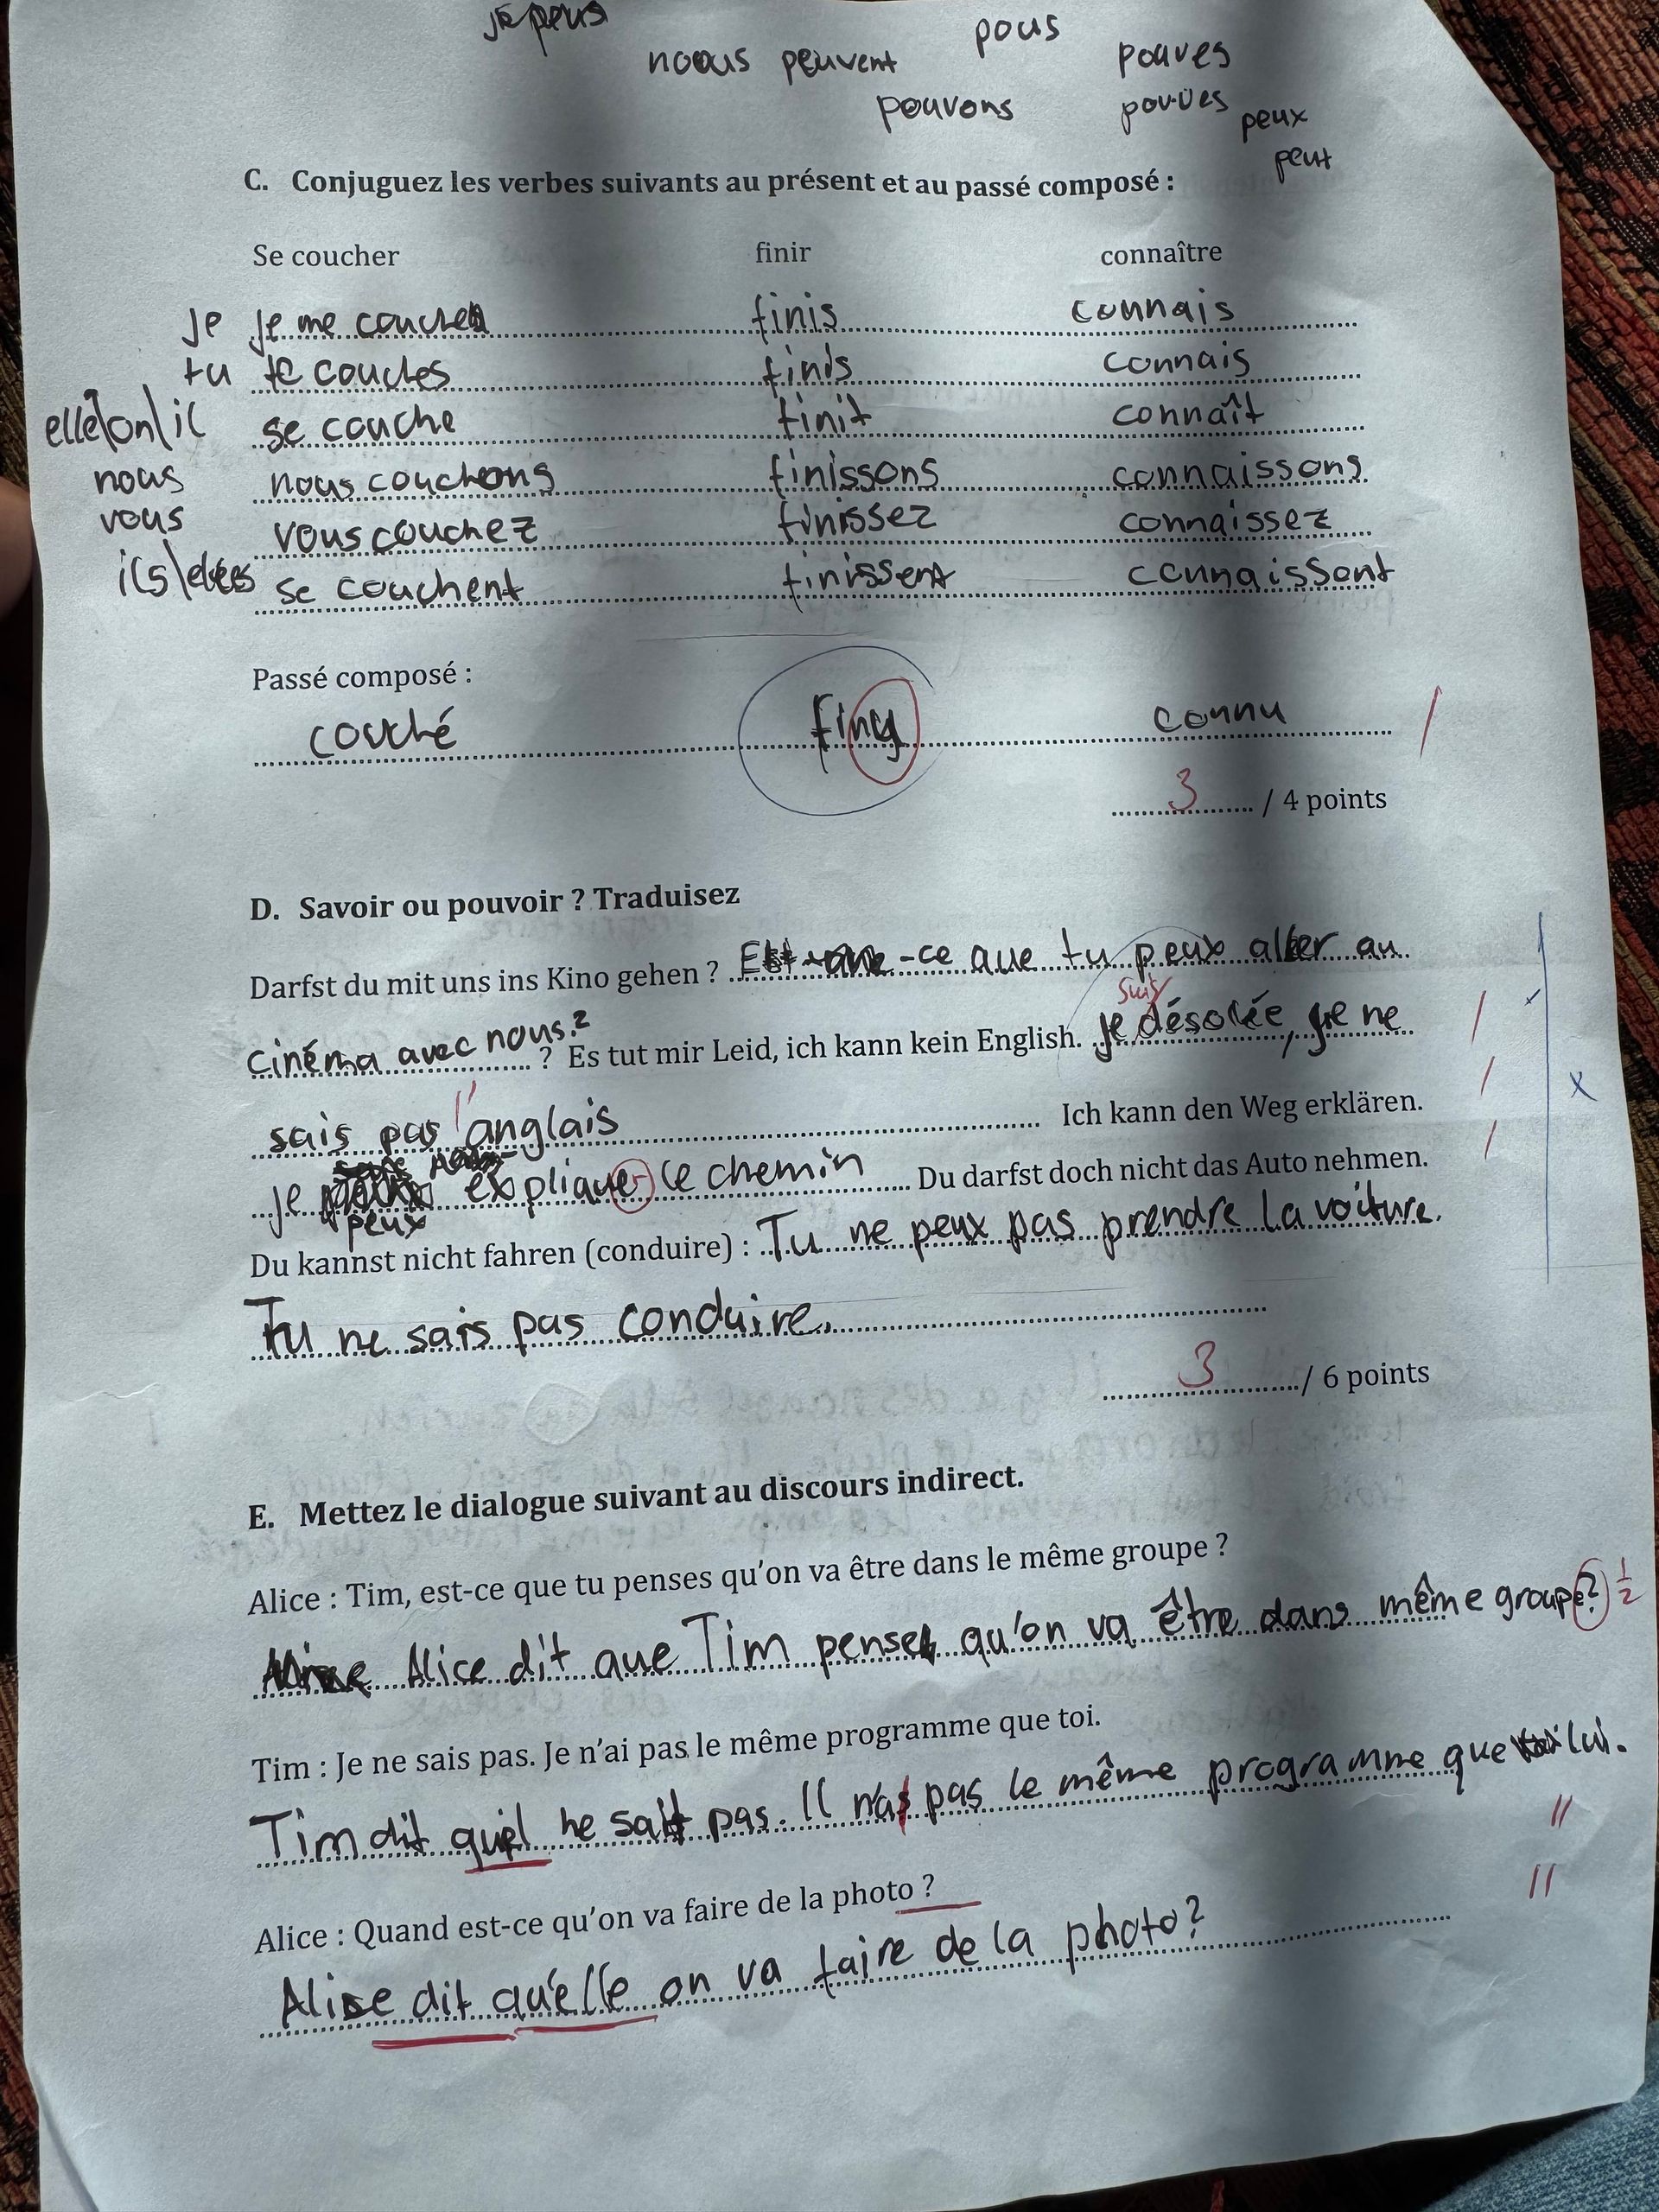 je peus
noous peuvent pous pouves
pouvons pouves peux
peut
C. Conjuguez les verbes suivants au présent et au passé composé :
Se coucher finir connaître
je je me couche finis connais
tu te couches finis connais
elle\on\il se couche finit connaît
nous nous couchons finissons connaissons
vous vous couchez finissez connaissez
ils\elles se couchent finissent connaissent
Passé composé :
couché finu connu /
3 / 4 points
D. Savoir ou pouvoir ? Traduisez
Darfst du mit uns ins Kino gehen ? Est -ce que tu peux aller au
suis
cinéma avec nous? ? Es tut mir Leid, ich kann kein English. je désolée, je ne /
sais pas l'anglais Ich kann den Weg erklären. / x
je peux explique le chemin Du darfst doch nicht das Auto nehmen. /
Du kannst nicht fahren (conduire) : Tu ne peux pas prendre la voiture.
Tu ne sais pas conduire.
3 / 6 points
E. Mettez le dialogue suivant au discours indirect.
Alice : Tim, est-ce que tu penses qu'on va être dans le même groupe ?
Alice dit que Tim pense qu'on va être dans même groupe? 1/2
Tim : Je ne sais pas. Je n'ai pas le même programme que toi.
Tim dit qu'il ne sait pas. Il n'a pas le même programme que lui.
//
Alice : Quand est-ce qu'on va faire de la photo ? //
Alice dit qu'elle on va faire de la photo?